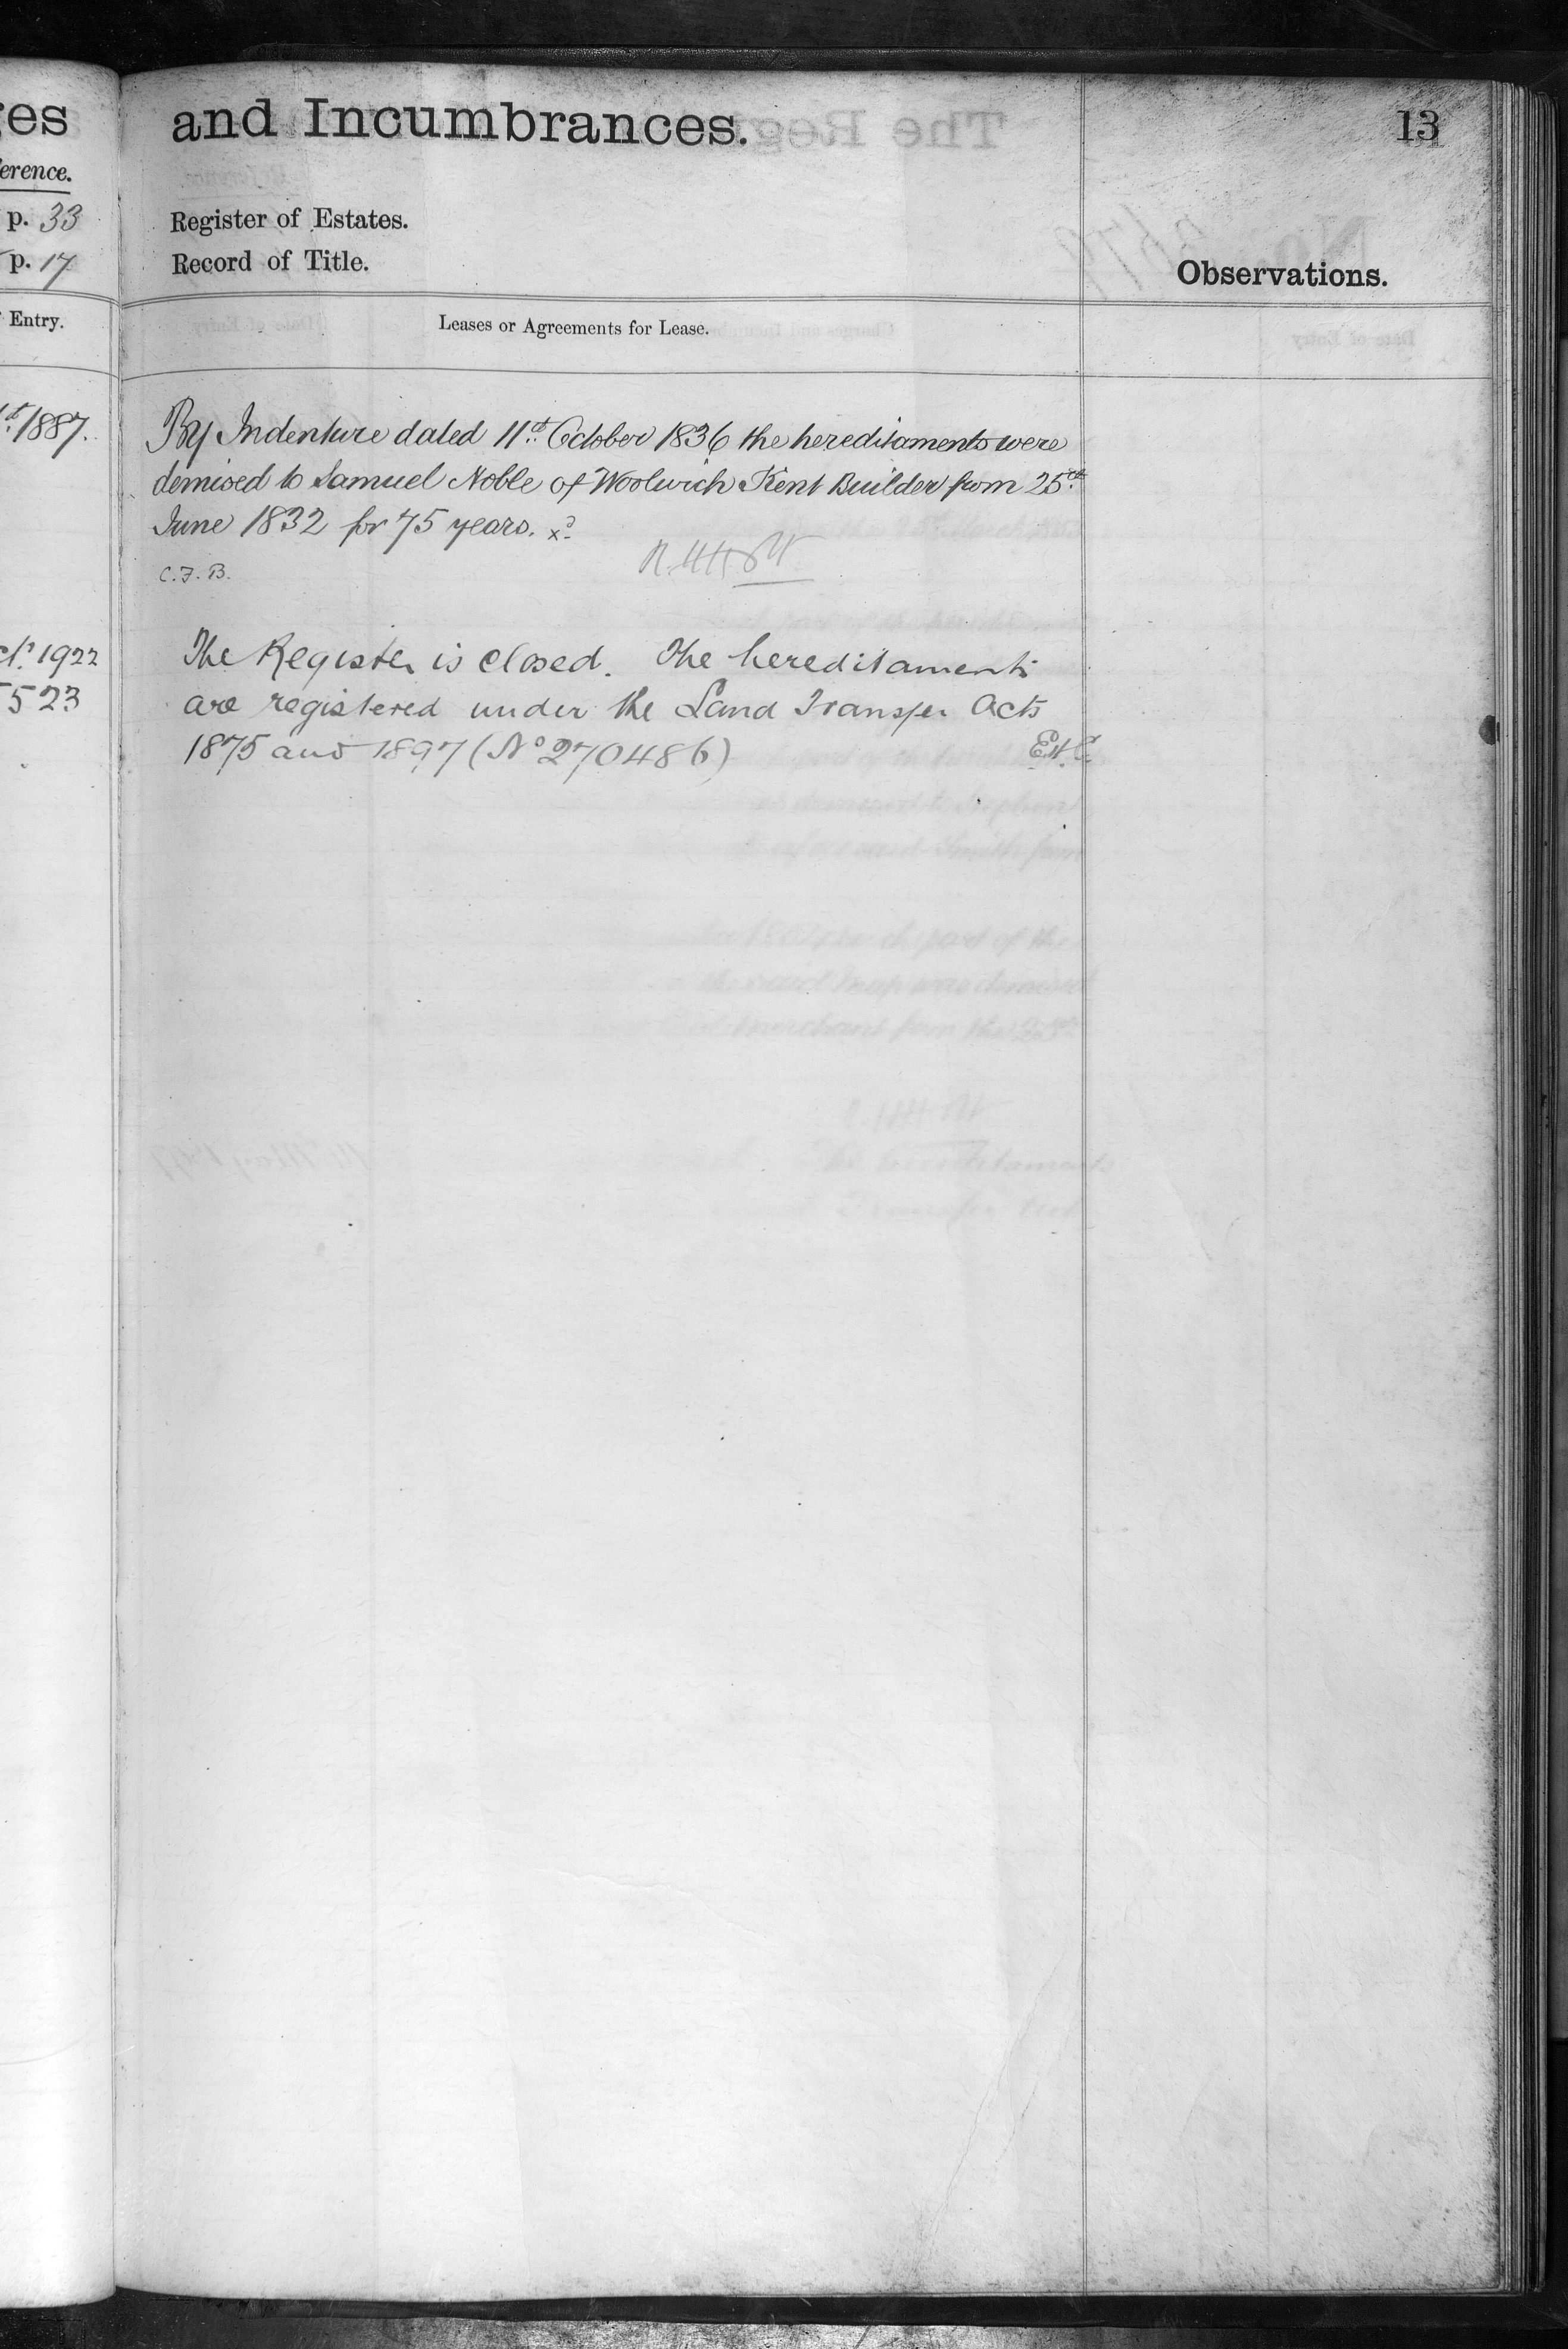 ges
and Incumbrances.
13
erence.
p. 33
Register of Estates.
p. 17
Record of Title.
Observations.
Entry.
Leases or Agreements for Lease.
1887.
By Indenture dated 11th October 1836 the hereditaments were
demised to Samuel Noble of Woolwich Kent Builder from 25th
June 1832 for 75 years.
C.F.B.
1922
523
The Register is closed. The hereditaments
are registered under the Land Transfer Acts
1875 and 1897 (No 270486)